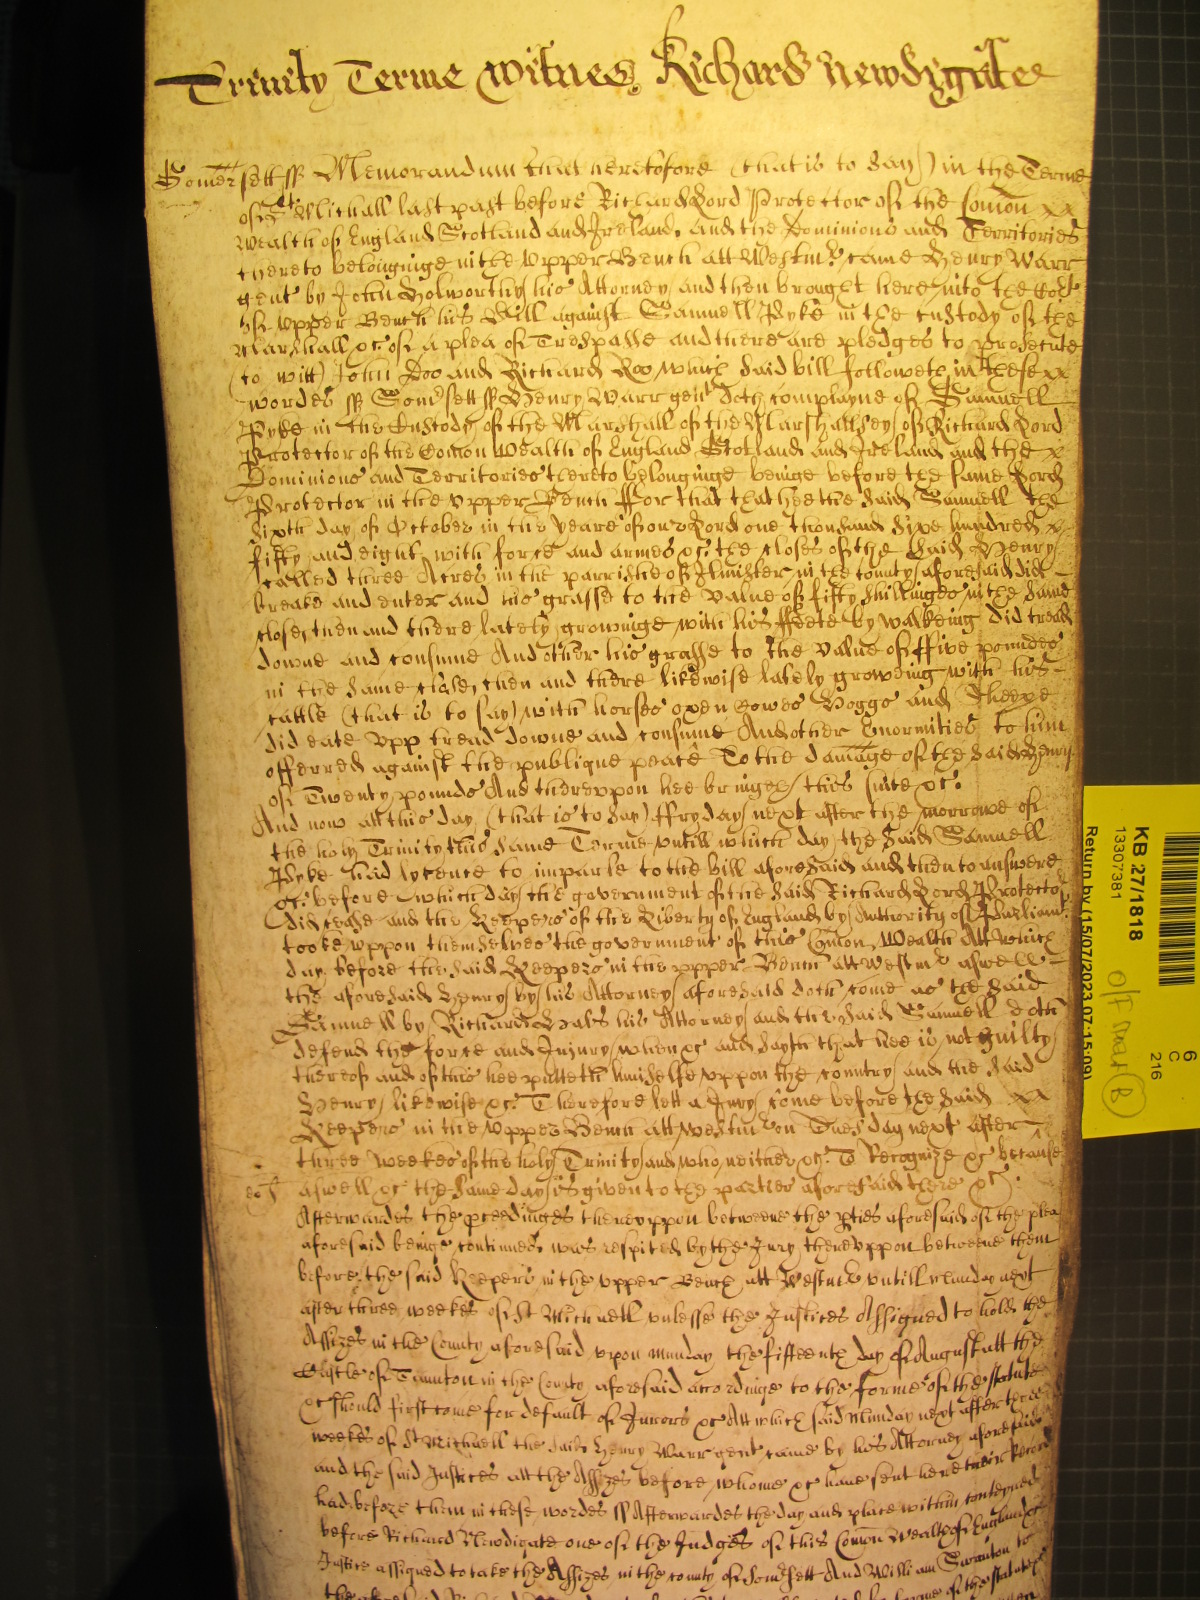 Trinity Terme Witnes Richard Newdigate
Somersett ss Memorandum that heretofore (that is to say) in the Terme
of St Michall last past before Richard Lord Protector of the Comon xx
wealth of England Scotland and Ireland, and the Dominions and Territories
thereto belonginge in the Upper Bench att Westmr came Henry Warr
gent by John Holworthy his Attorney, and then brought here into the Cort
of Upper Bench his Bill against Samuell Pyke in the custody of the
Marshall &c of a plea of Trespasse and there are pledges to prosecute
(to witt) John Doo and Richard Roo which said bill followeth in these xx
wordes ss Somersett ss Henry Warr gent doth complayne of Samuell
Pyke in the Custody of the Marshall of the Marshallsey of Richard Lord
Protector of the Comon Wealth of England Scotland and Ireland and the x
Dominions and Territories thereto belonginge beinge before the same Lord
Protector in the Upper Bench ffor that that hee the said Samuell the
sixth day of October in the yeare of our Lord one thousand sixe hundred x
fifty and eight with force and armes &c the closes of the said Henry
called three Acres in the parrishe of Ilmister in the county aforesaid did
breake and enter and his grasse to the value of fifty shillinges in the same
close, then and there lately growinge with his ffeete by walkeing did tread
downe and consume And other his grasse to the value of ffive poundes
in the same close, then and there likewise lately groweing with his
cattle (that is to say) with horses oxen Cowes Hoggs and Sheepe
did eate upp tread downe and consume And other Enormities to him
offerred against the publique peace To the damage of the said Henry
of Twenty pounds And thereuppon hee bringeth this suite &c
And now att this day (that is to say) ffryday next after the morrowe of
the holy Trinity this same Terme untill which day the said Samuell
Pyke had lycence to imparle to the bill aforesaid and then to answere
&c before which day the government of the said Richard Lord Protector
did cease and the Keepers of the Liberty of England by Authority of Parliamt
tooke uppon themselves the government of this Comon Wealth Att which
day before the said Keepers in the upper Bench att Westmr aswell
the aforesaid Henry by his Attorney aforesaid doth come as the said
Samuell by Richard Hals his Attorney and the said Samuell doth
defend the force and Injury when &c and sayth that hee is not guilty
thereof and of this hee putteth himselfe uppon the country and the said
Henry likewise &c Therefore lett a Jury come before the said xx
Keepers in the Upper Bench att Westmr on Tuesday next after
three weekes of the holy Trinity and who neither &c To Recognize &c because
aswell &c the same day is given to the parties aforesaid there &c
Afterwardes the pceedinges thereuppon betweene the pties aforesaid of the plea
aforesaid beinge continued was respited by the Jury thereuppon betweene them
before the said Keepers in the upper Bench att Westmr untill Munday next
after three weekes of St Michaell unlesse the Justices Assigned to hold the
Assizes in the County aforesaid upon munday the fifteenth day of August att the
Castle of Taunton in the County aforesaid accordinge to the forme of the statute
&c should first come for default of Jurors &c Att which said Munday next after three
weekes of St Michaell the said Henry Warr gent came by his Attorney aforesaid
and the said Justices att the Assizes before whome &c have sent here their Record
had before them in these wordes ss Afterwardes the day and place within conteyned
before Richard Newdigate one of the Judges of this Comon Wealth of England &c
Justice assigned to take the Assizes in the county of Somersett And William Swanton to
KB 27/1818
13307381
Return by (15/07/2023 07:15:09)
6
C
216